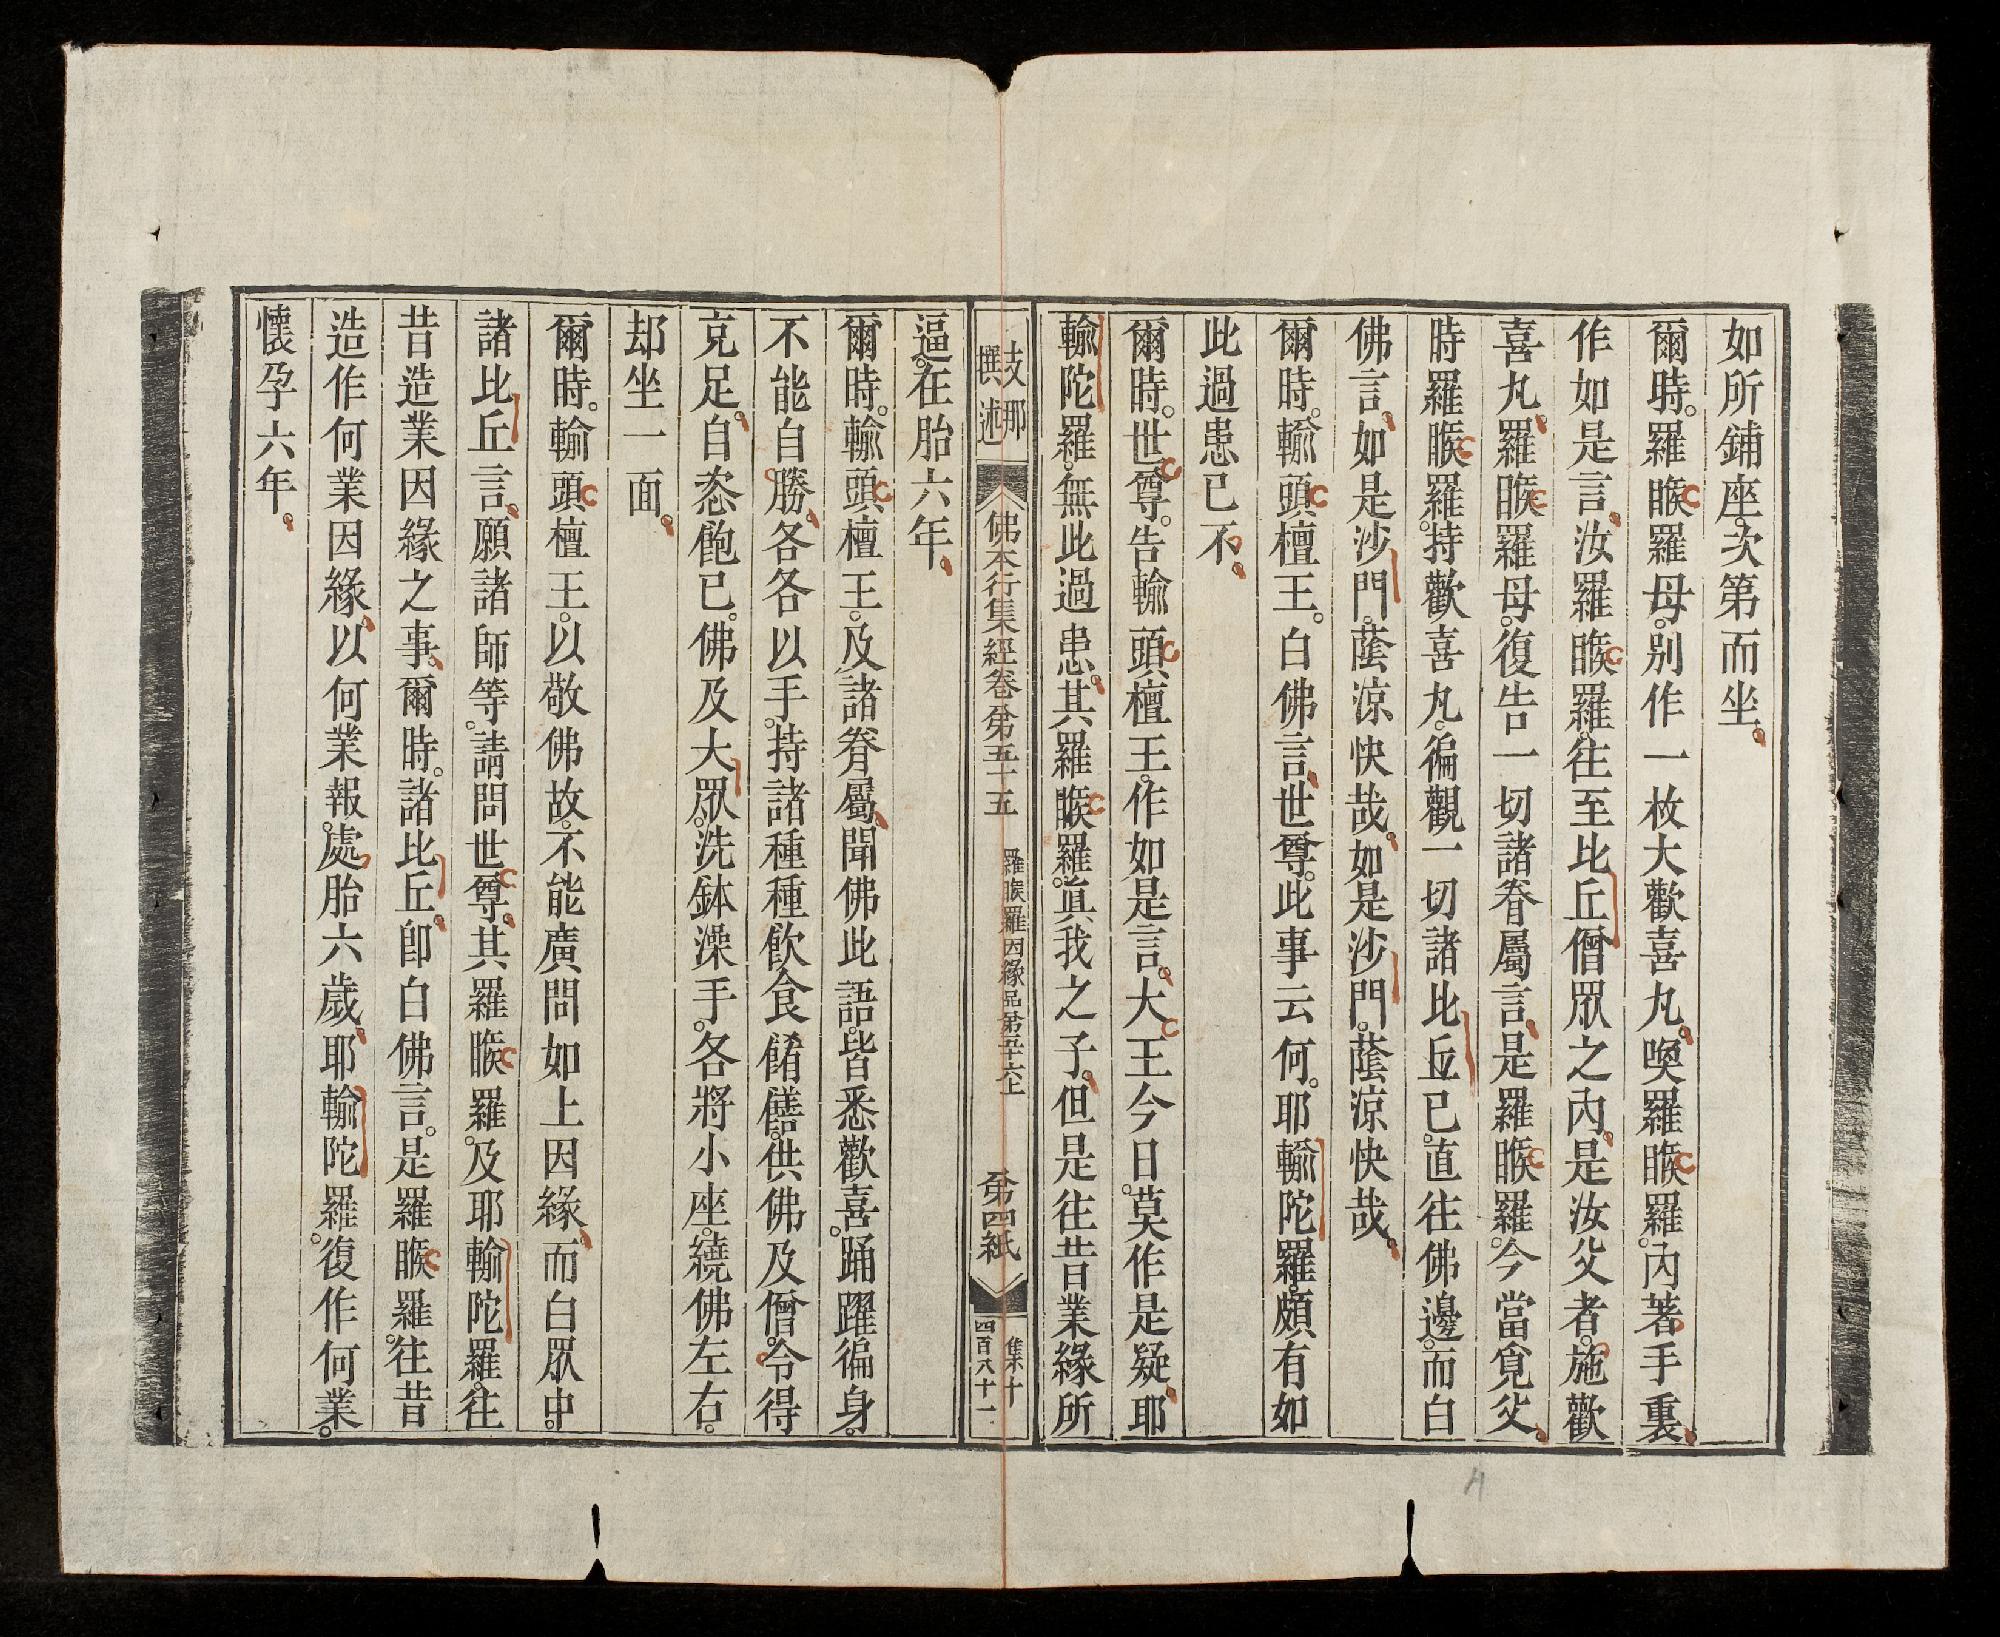 如所鋪座。次第而坐。
爾時。羅睺羅母。別作一枚大歡喜丸。喚羅睺羅。內著手裏。
作如是言。汝羅睺羅。往至比丘僧眾之內。是汝父者。施歡
喜丸。羅睺羅母。復告一切諸眷屬言。是羅睺羅。今當覓父。
時羅睺羅。持歡喜丸。徧觀一切諸比丘已。直往佛邊。而白
佛言。如是沙門。蔭涼快哉。如是沙門。蔭涼快哉。
爾時。輸頭檀王。白佛言。世尊。此事云何。耶輸陀羅。頗有如
此過患已不。
爾時。世尊。告輸頭檀王。作如是言。大王今日。莫作是疑。耶
輸陀羅。無此過患。其羅睺羅。眞我之子。但是往昔業緣所
支那
撰述
佛本行集經卷第五十五 羅睺羅因緣品第五十六上 第四紙
集十
四百八十一
逼。在胎六年。
爾時。輸頭檀王。及諸眷屬。聞佛此語。皆悉歡喜。踊躍徧身。
不能自勝。各各以手。持諸種種飲食餚饍。供佛及僧。令得
充足。自恣飽已。佛及大眾。洗鉢澡手。各將小座。繞佛左右。
却坐一面。
爾時。輸頭檀王。以敬佛故。不能廣問如上因緣。而白眾中。
諸比丘言。願諸師等。請問世尊。其羅睺羅。及耶輸陀羅。往
昔造業因緣之事。爾時。諸比丘。卽白佛言。是羅睺羅。往昔
造作何業因緣。以何業報。處胎六歲。耶輸陀羅。復作何業。
懷孕六年。